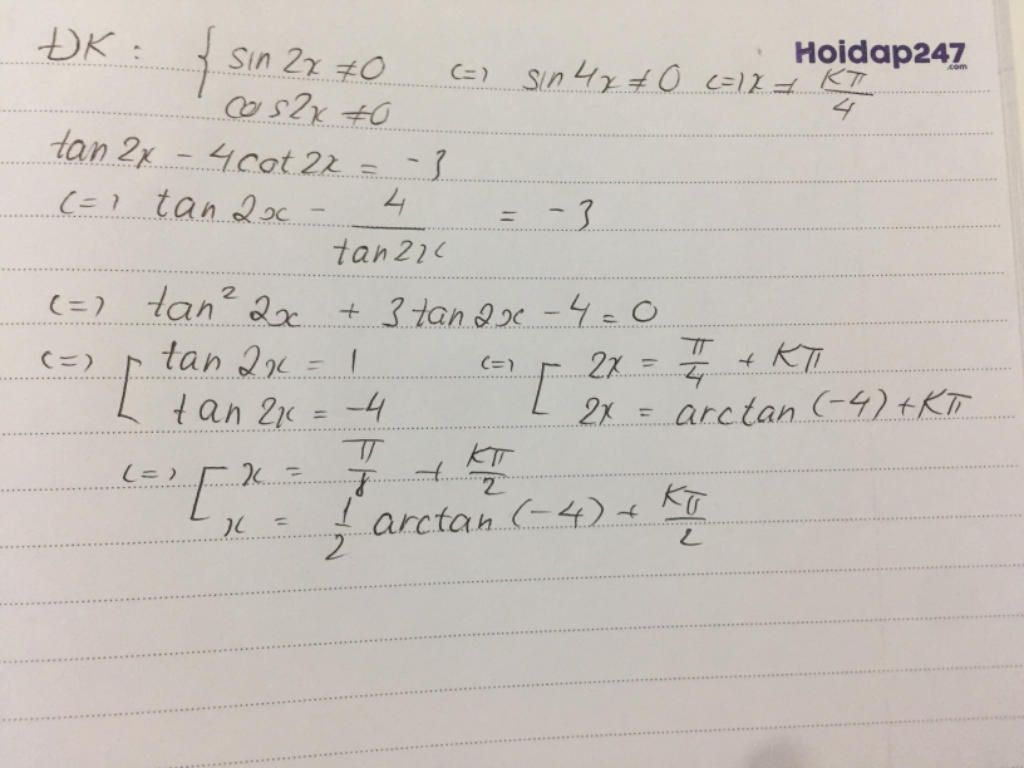 ĐK : { sin 2x ≠ 0 <=> sin 4x ≠ 0 <=> x ≠ Kπ/4
cos2x ≠ 0
Hoidap247
.com
tan 2x - 4cot 2x = -3
<=> tan 2x - 4/tan2x = -3
<=> tan² 2x + 3 tan 2x - 4 = 0
<=> [ tan 2x = 1 <=> [ 2x = π/4 + Kπ
tan 2x = -4 2x = arctan (-4) + Kπ
<=> [ x = π/8 + Kπ/2
x = 1/2 arctan (-4) + Kπ/2